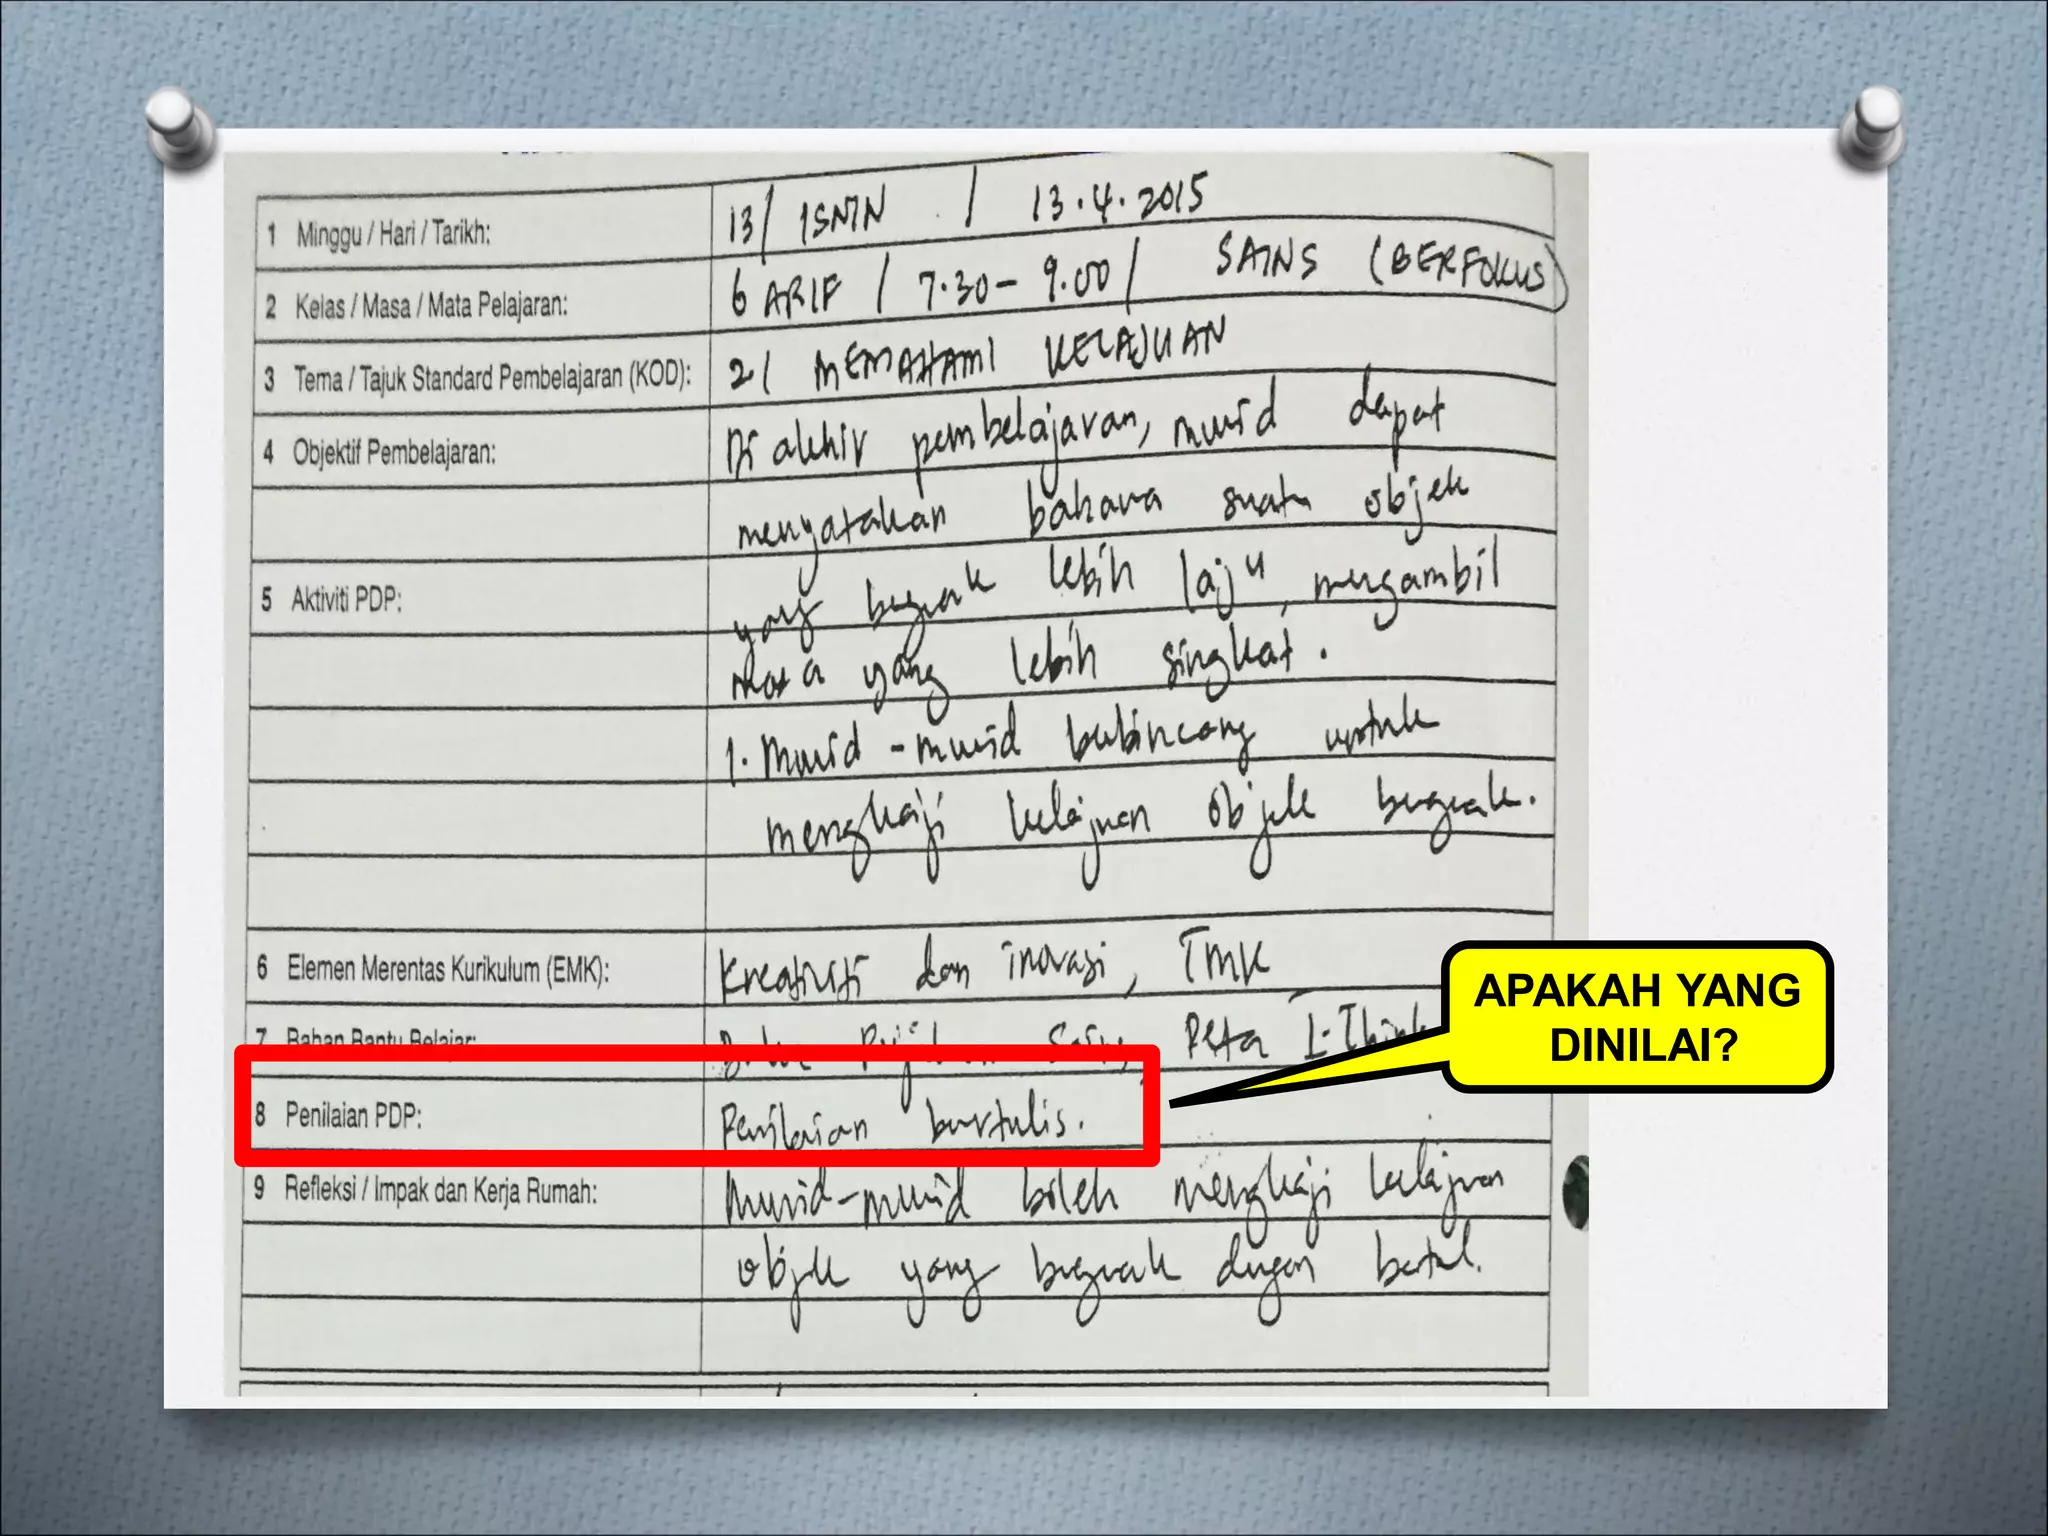 1 Minggu / Hari / Tarikh: 13 / ISNIN / 13.4.2015
2 Kelas / Masa / Mata Pelajaran: 6 ARIF / 7.30 - 9.00 / SAINS (BERFOKUS)
3 Tema / Tajuk Standard Pembelajaran (KOD): 2 / MEMAHAMI KELAJUAN
4 Objektif Pembelajaran: Di akhir pembelajaran, murid dapat
menyatakan bahawa suatu objek
5 Aktiviti PDP: yang bergerak lebih laju, mengambil
masa yang lebih singkat.
1. Murid-murid berbincang untuk
mengkaji kelajuan objek bergerak.
6 Elemen Merentas Kurikulum (EMK): Kreativiti dan inovasi, TMK
7 Bahan Bantu Belajar: Sains, Peta I-Think
APAKAH YANG
DINILAI?
8 Penilaian PDP: Penilaian bertulis.
9 Refleksi / Impak dan Kerja Rumah: Murid-murid boleh mengkaji kelajuan
objek yang bergerak dengan betul.